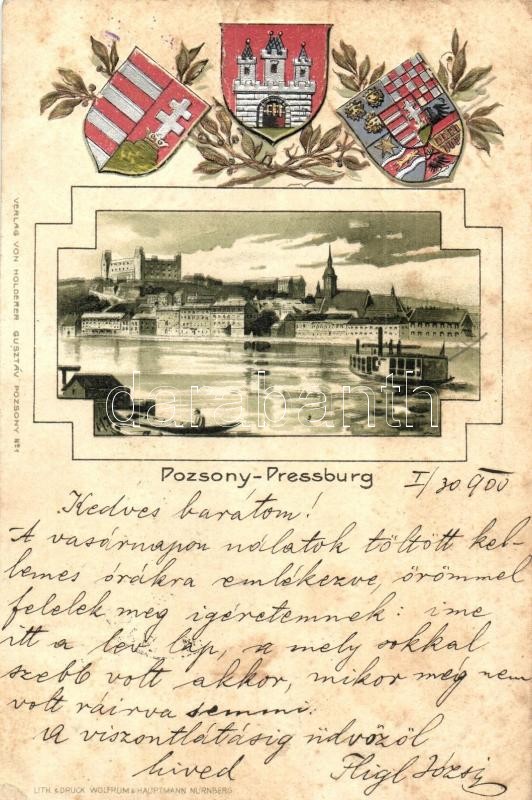 VERLAG VON HOLDERER GUSZTÁV POZSONY No 1
darabanth
Pozsony-Pressburg
I/30 900
Kedves barátom!
A vasárnapon nálatok töltött kel-
lemes órákra emlékezve, örömmel
felelek meg igéretemnek: ime
itt a lev. lap, a mely sokkal
szebb volt akkor, mikor még nem
volt ráirva semmi.
A viszontlátásig üdvözöl
hived Fligl Józsi
LITH. & DRUCK WOLFRUM & HAUPTMANN NÜRNBERG